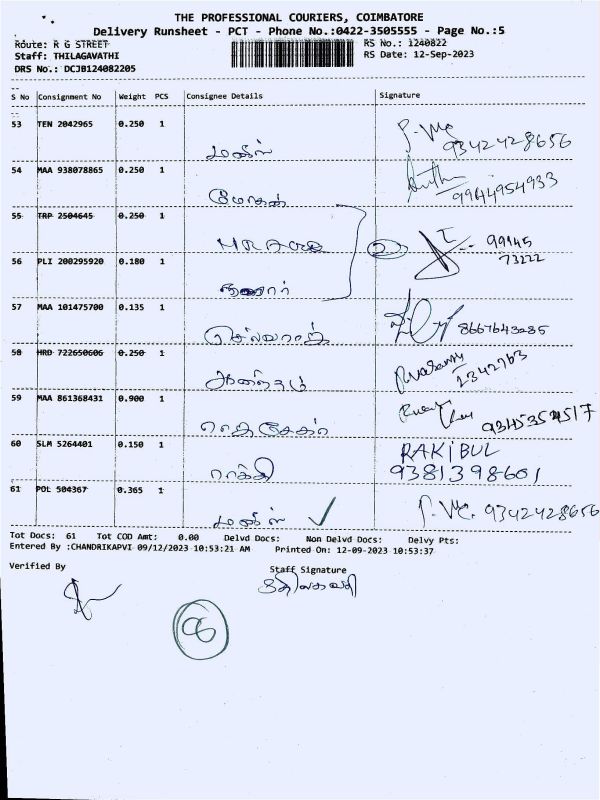 THE PROFESSIONAL COURIERS, COIMBATORE
Delivery Runsheet - PCT - Phone No.:0422-3505555 - Page No.:5
Route: R G STREET RS No.: 1240822
Staff: THILAGAVATHI RS Date: 12-Sep-2023
DRS No.: DCJB124082205
S No Consignment No Weight PCS Consignee Details Signature
53 TEN 2042965 0.250 1
9342428656
54 MAA 938078865 0.250 1
மோகன் 9944954933
55 TRP 2504645 0.250 1
2 99145
73222
56 PLI 200295920 0.180 1
57 MAA 101475700 0.135 1
செல்வராஜ் 8667643285
58 HRD 722650606 0.250 1
59 MAA 861368431 0.900 1
ராஜசேகர்
60 SLM 5264401 0.150 1 RAKIBUL
ராக்கி 9381398601
61 POL 504367 0.365 1
9342428656
Tot Docs: 61 Tot COD Amt: 0.00 Delvd Docs: Non Delvd Docs: Delvy Pts:
Entered By :CHANDRIKAPVI 09/12/2023 10:53:21 AM Printed On: 12-09-2023 10:53:37
Verified By Staff Signature
திலகவதி